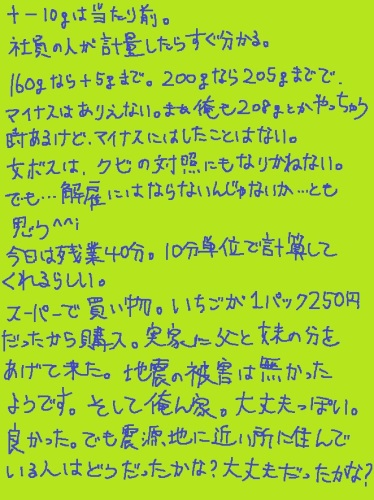 +-10gは当たり前。
社員の人が計量したらすぐ分かる。
160gなら+5gまで。200gなら205gまでで、
マイナスはありえない。まぁ俺も208gとかやっちゃう
時あるけど、マイナスにはしたことはない。
女ボスは、クビの対照にもなりかねない。
でも…解雇にはならないんじゃないか…とも
思う^^;
今日は残業40分。10分単位で計算して
くれるらしい。
スーパーで買い物。いちごが1パック250円
だったから購入。実家に父と妹の分を
あげて来た。地震の被害は無かった
ようです。そして俺ん家。大丈夫っぽい。
良かった。でも震源地に近い所に住んで
いる人はどうだったかな?大丈夫だったかな?